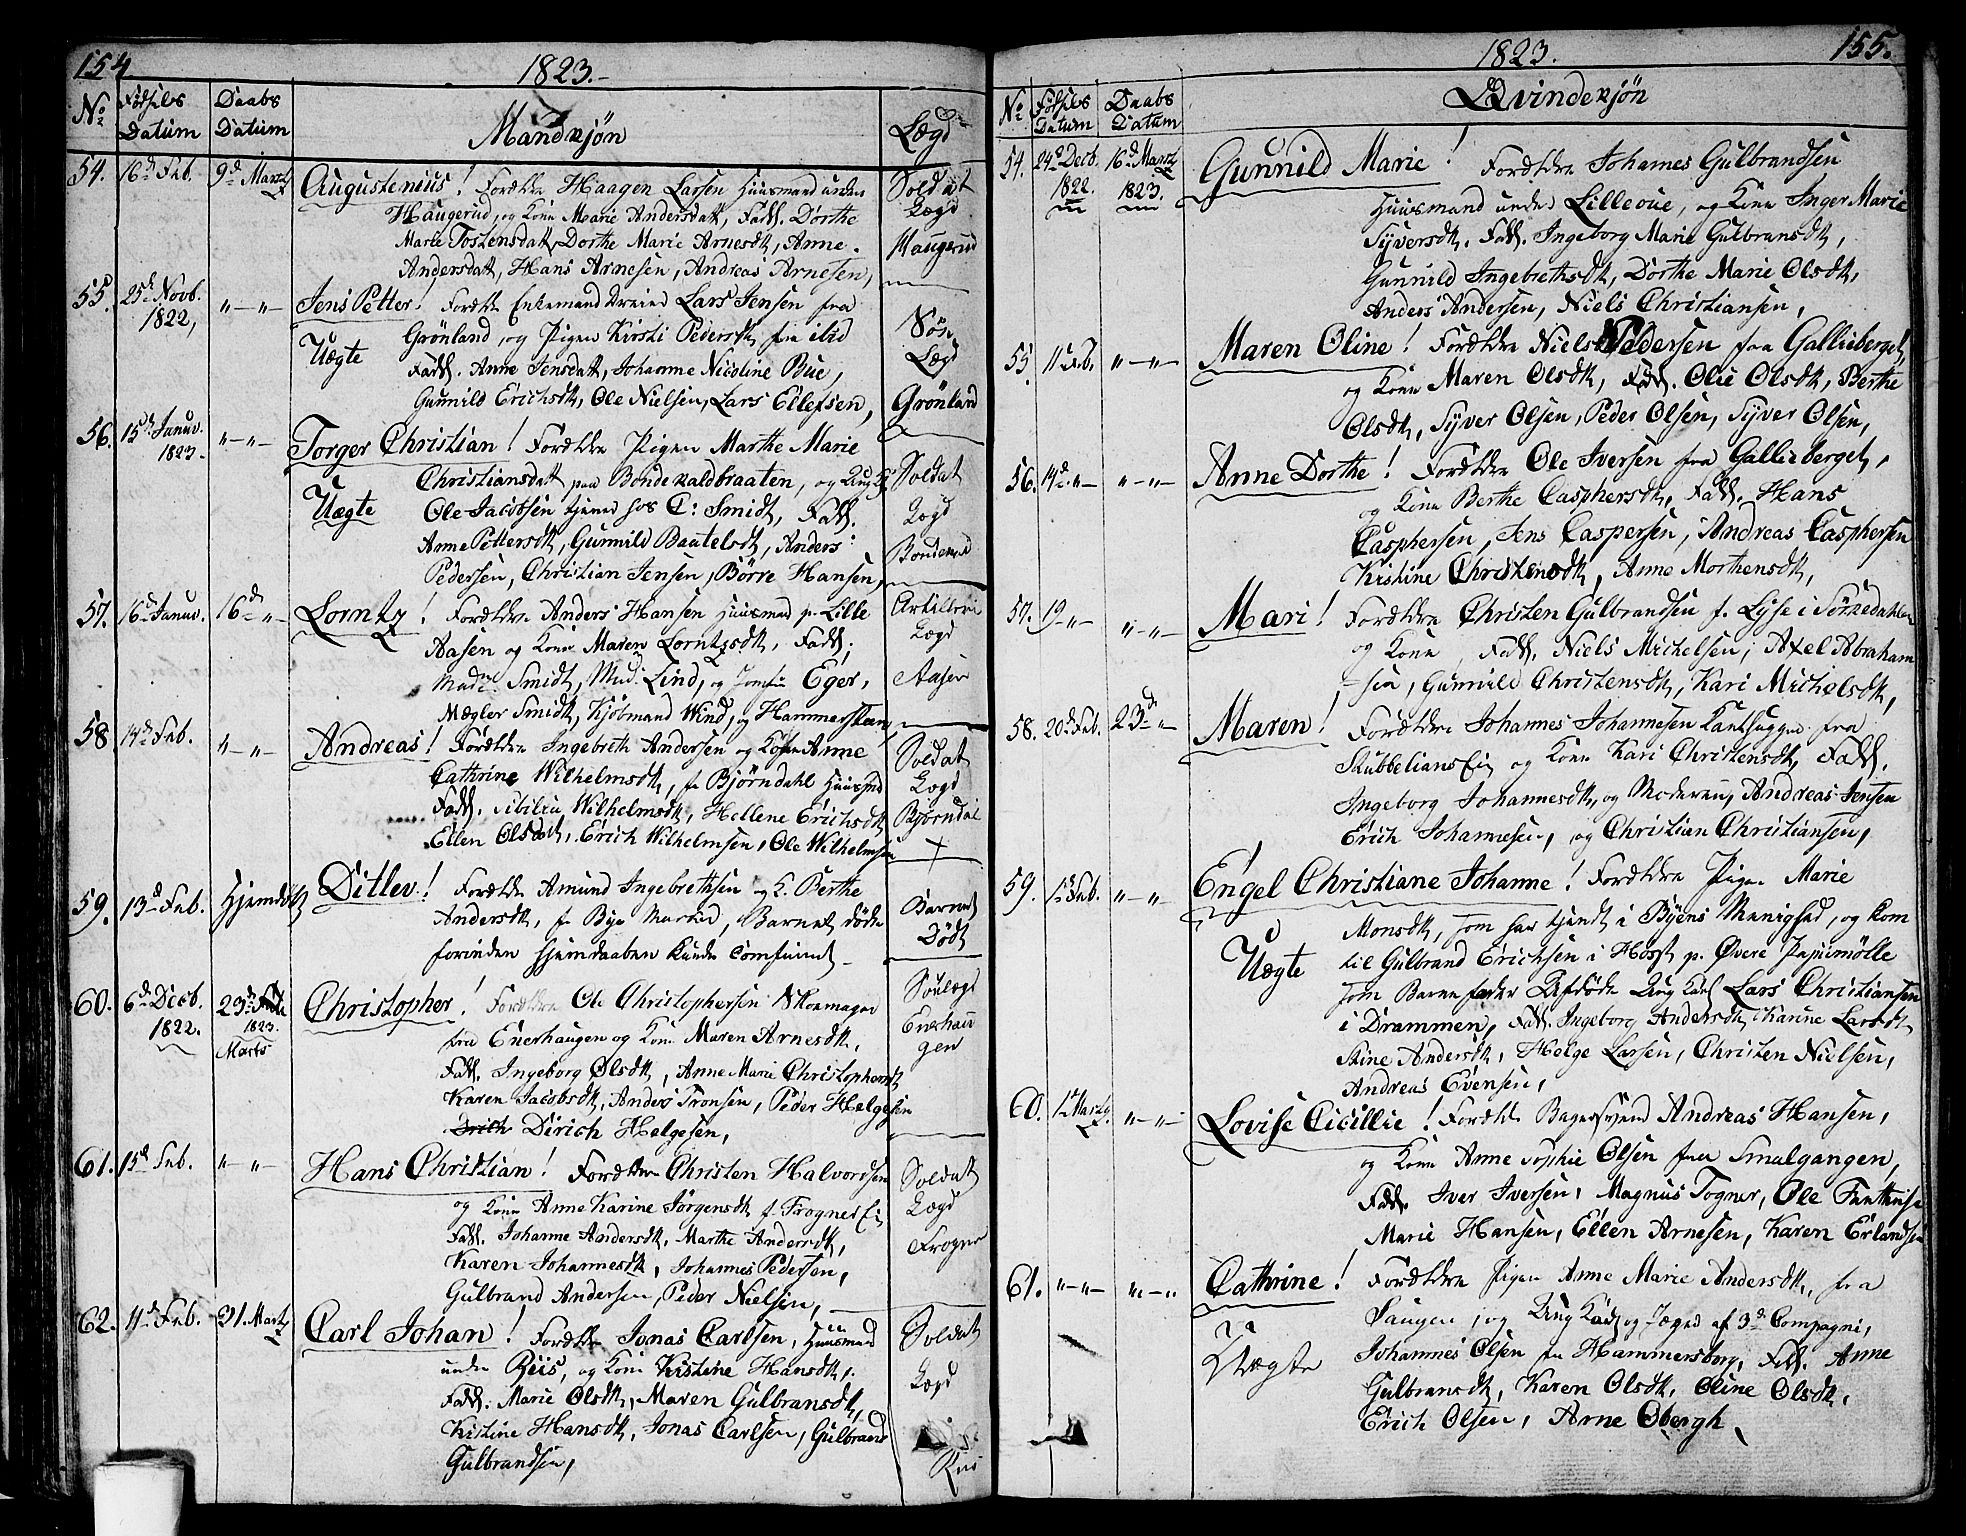 154
1823.-
No Fødsels Datum Daabs Datum Mandkjøn Lægd
54. 16d Feb. 9d Martz Augustenius! Forældre Haagen Larsen Huusmand under Soldat
Haugerud, og Kone Marie Andersdatt, Fadd. Dorthe Lægd
Marie Tostensdatt, Dorthe Marie Arnesdtr, Anne Haugerud
Andersdatt, Hans Arnesen, Andreas Arnesen,
55. 25d Novb. 1822, "-"- Jens Petter! Forældre Enkemand Lars Jensen fra Søe
Uægte Grønland, og Pigen Kirsti Pedersdtr fra itid Lægd
Fadd. Anne Jensdatt, Johanne Nicoline Bue,
Gunnild Erichsdtr, Ole Nielsen, Lars Ellefsen, Grønland
56. 15d Januv. 1823. "-"- Torger Christian! Forældre Pigen Marthe Marie
Christiansdatt paa Bondevaldbraaten, og Ung K. Soldat
Uægte Ole Jacobsen tjener hos C: Smidt, Fadd. Lægd
Anne Pettersdtr, Gunnild Baatelsdtr, Anders
Pedersen, Christian Jensen, Børre Hansen,
57. 16d Januv. 16d "- Lorntz! Forældre Anders Hansen Huusmad p. Lille Artilleri
Aasen og Kone Maren Lorntzsdtr, Fadd. Lægd
Madm Smidt, Mad. Lind, og Jomfru Eger, Aasen
Mægler Smidt, Kjøbmand Wind, og Hammersteen,
58 14d Feb. "-"- Andreas! Forældre Ingebreth Andersen og Kone Anne Soldat
Cathrine Wilhelmsdtr, fr Bjørndahl Huusmd Lægd
Fadd. Sibilla Wilhelmsdtr, Hellene Erichsdtr Bjørndal
Ellen Olsdatt, Erich Wilhelmsen, Ole Wilhelmsen +
59. 13d Feb. Hjemdøbt Ditlev! Forældre Amund Ingebrethsen og K. Berthe Barnet
Andersdtr, fr Bye Marker, Barnet døde Dødt
forinden Hjemdaaben kunde comfirmet
60. 6d Decb. 1822. 23d 1823. Marts Christopher! Forældre Ole Christophersen Skomager Søelægd
fra Enerhaugen og Kone Maren Arnesdtr, Enerhau
Fadd. Ingeborg Olsdtr, Anne Marie Christophersdtr gen
Karen Jacobsdtr, Anders Tronsen, Peder Helgesen
Dirich Helgesen,
61. 15d Feb. "-"- Hans Christian! Forældre Christen Halvordsen Soldat
og Kone Anne Karine Jørgensdtr f. Frogner Ei Lægd
Fadd. Johanne Andersdtr, Marthe Andersdtr, Frogner
Karen Johannesdtr, Johannes Pedersen,
Gulbrand Andersen, Peder Nielsen,
62. 11d Feb. 31. Martz Carl Johan! Forældre Jonas Carlsen, Huusmand Soldat
under Riis, og Kone Kristine Hansdtr, Lægd
Fadd. Marie Olsdtr, Maren Gulbransdtr,
Kistine Hansdtr, Jonas Carlsen, Gulbrand
Gulbrandsen, Riis
1823. 155.
No Fødsels Datum Daabs Datum Qvindekjøn
54. 24d Decb. 1822. 16d Martz 1823. Gunnild Marie! Forældre Johames Gulbrandsen
Huusmand under Lilleoue, og Kone Inger Marie
Syversdtr. Fadd. Ingeborg Marie Gulbransdtr,
Gunnild Ingebrethsdtr, Dorthe Marie Olsdtr,
Anders Andersen, Niels Christiansen,
55. 11 Feb. "-"- Maren Oline! Forældre Niels Pedersen fra Gallieberget,
og Kone Maren Olsdtr, Fadd. Olie Olsdtr, Berthe
Olsdtr, Syver Olsen, Peder Olsen, Syver Olsen,
56. 14d "- "-"- Anne Dorthe! Forældre Ole Iversen fra Gallieberget,
og Kone Berthe Casphersdtr, Fadd. Hans
Casphersen, Jens Caspersen, Andreas Casphersen
Kistine Christensdtr, Anne Morthensdtr,
57. 19 "- "-"- Mari! Forældre Christen Gulbrandsen f. Lyse i Sørkedahlen
og Kone Fadd. Niels Michelsen, Axel Abraham
=sen, Gunnild Christensdtr, Kari Michelsdtr,
58. 20d Feb. 23d " Maren! Forældre Johannes Johannesen Kanthugger fra
Skubbelians Ei og Kone Kari Christensdtr, Fadd.
Ingeborg Johannesdtr, og Moderen, Andreas Jensen
Erich Johannesen, og Christian Christiansen,
59. 12 Feb. "-"- Engel Christiane Johanne! Forældre Pigen Marie
Monsdtr, som har tjendt i Byens Menighed, og kom
Uægte til Gulbrand Erichsen i Hosst p. Øvere Papiirmølle
som Barne fader Afdøde Ung Karl Lars Christiansen
i Drammen, Fadd. Ingeborg Andersdtr, Karine Larsdtr
Stine Andersdtr, Helge Larsen, Christen Nielsen,
Andreas Evensen,
60. 1d Martz. "-"- Lovise Cicillie! Forældre Bagersvend Andreas Hansen,
og Kone Anne Sophie Olsen fra Smalgangen,
Fadd. Iver Iversen, Magnus Togner, Ole
Marie Hansen, Ellen Arnesen, Karen Erlandsen
61. "-"- "-"- Cathrine! Forældre Pigen Anne Marie Andersdtr, fra
Saugen, og Ung Karl og Jæger af 3d Compagni,
Uægte Johannes Olsen fra Hammersborg, Fadd. Anne
Gulbransdtr, Karen Olsdtr, Oline Olsdtr,
Erich Olsen, Arne Obergh,